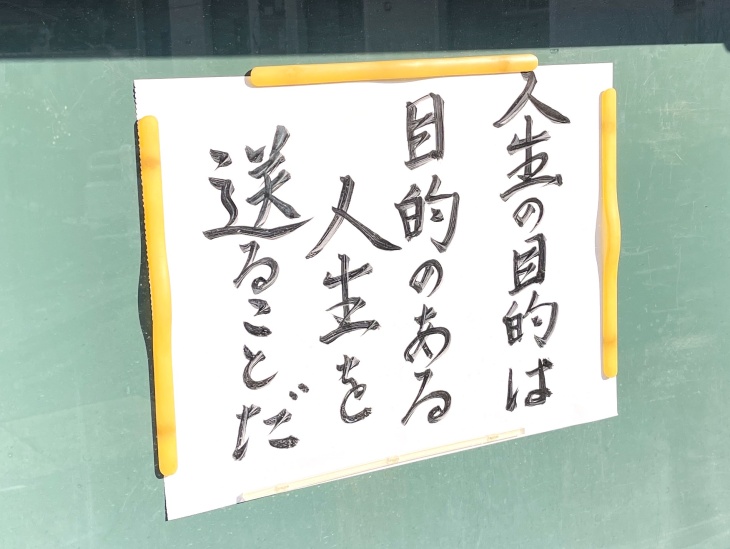 人生の目的は
目的のある
人生を
送ることだ